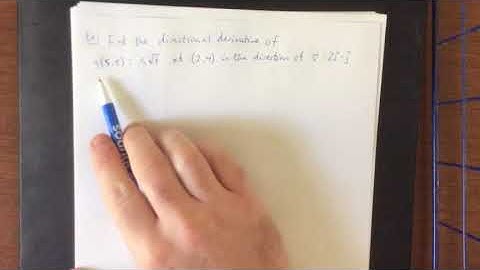 Ex) Find the directional derivative of
g(s,t) = s√t at (2,4) in the direction of v = 2i - j